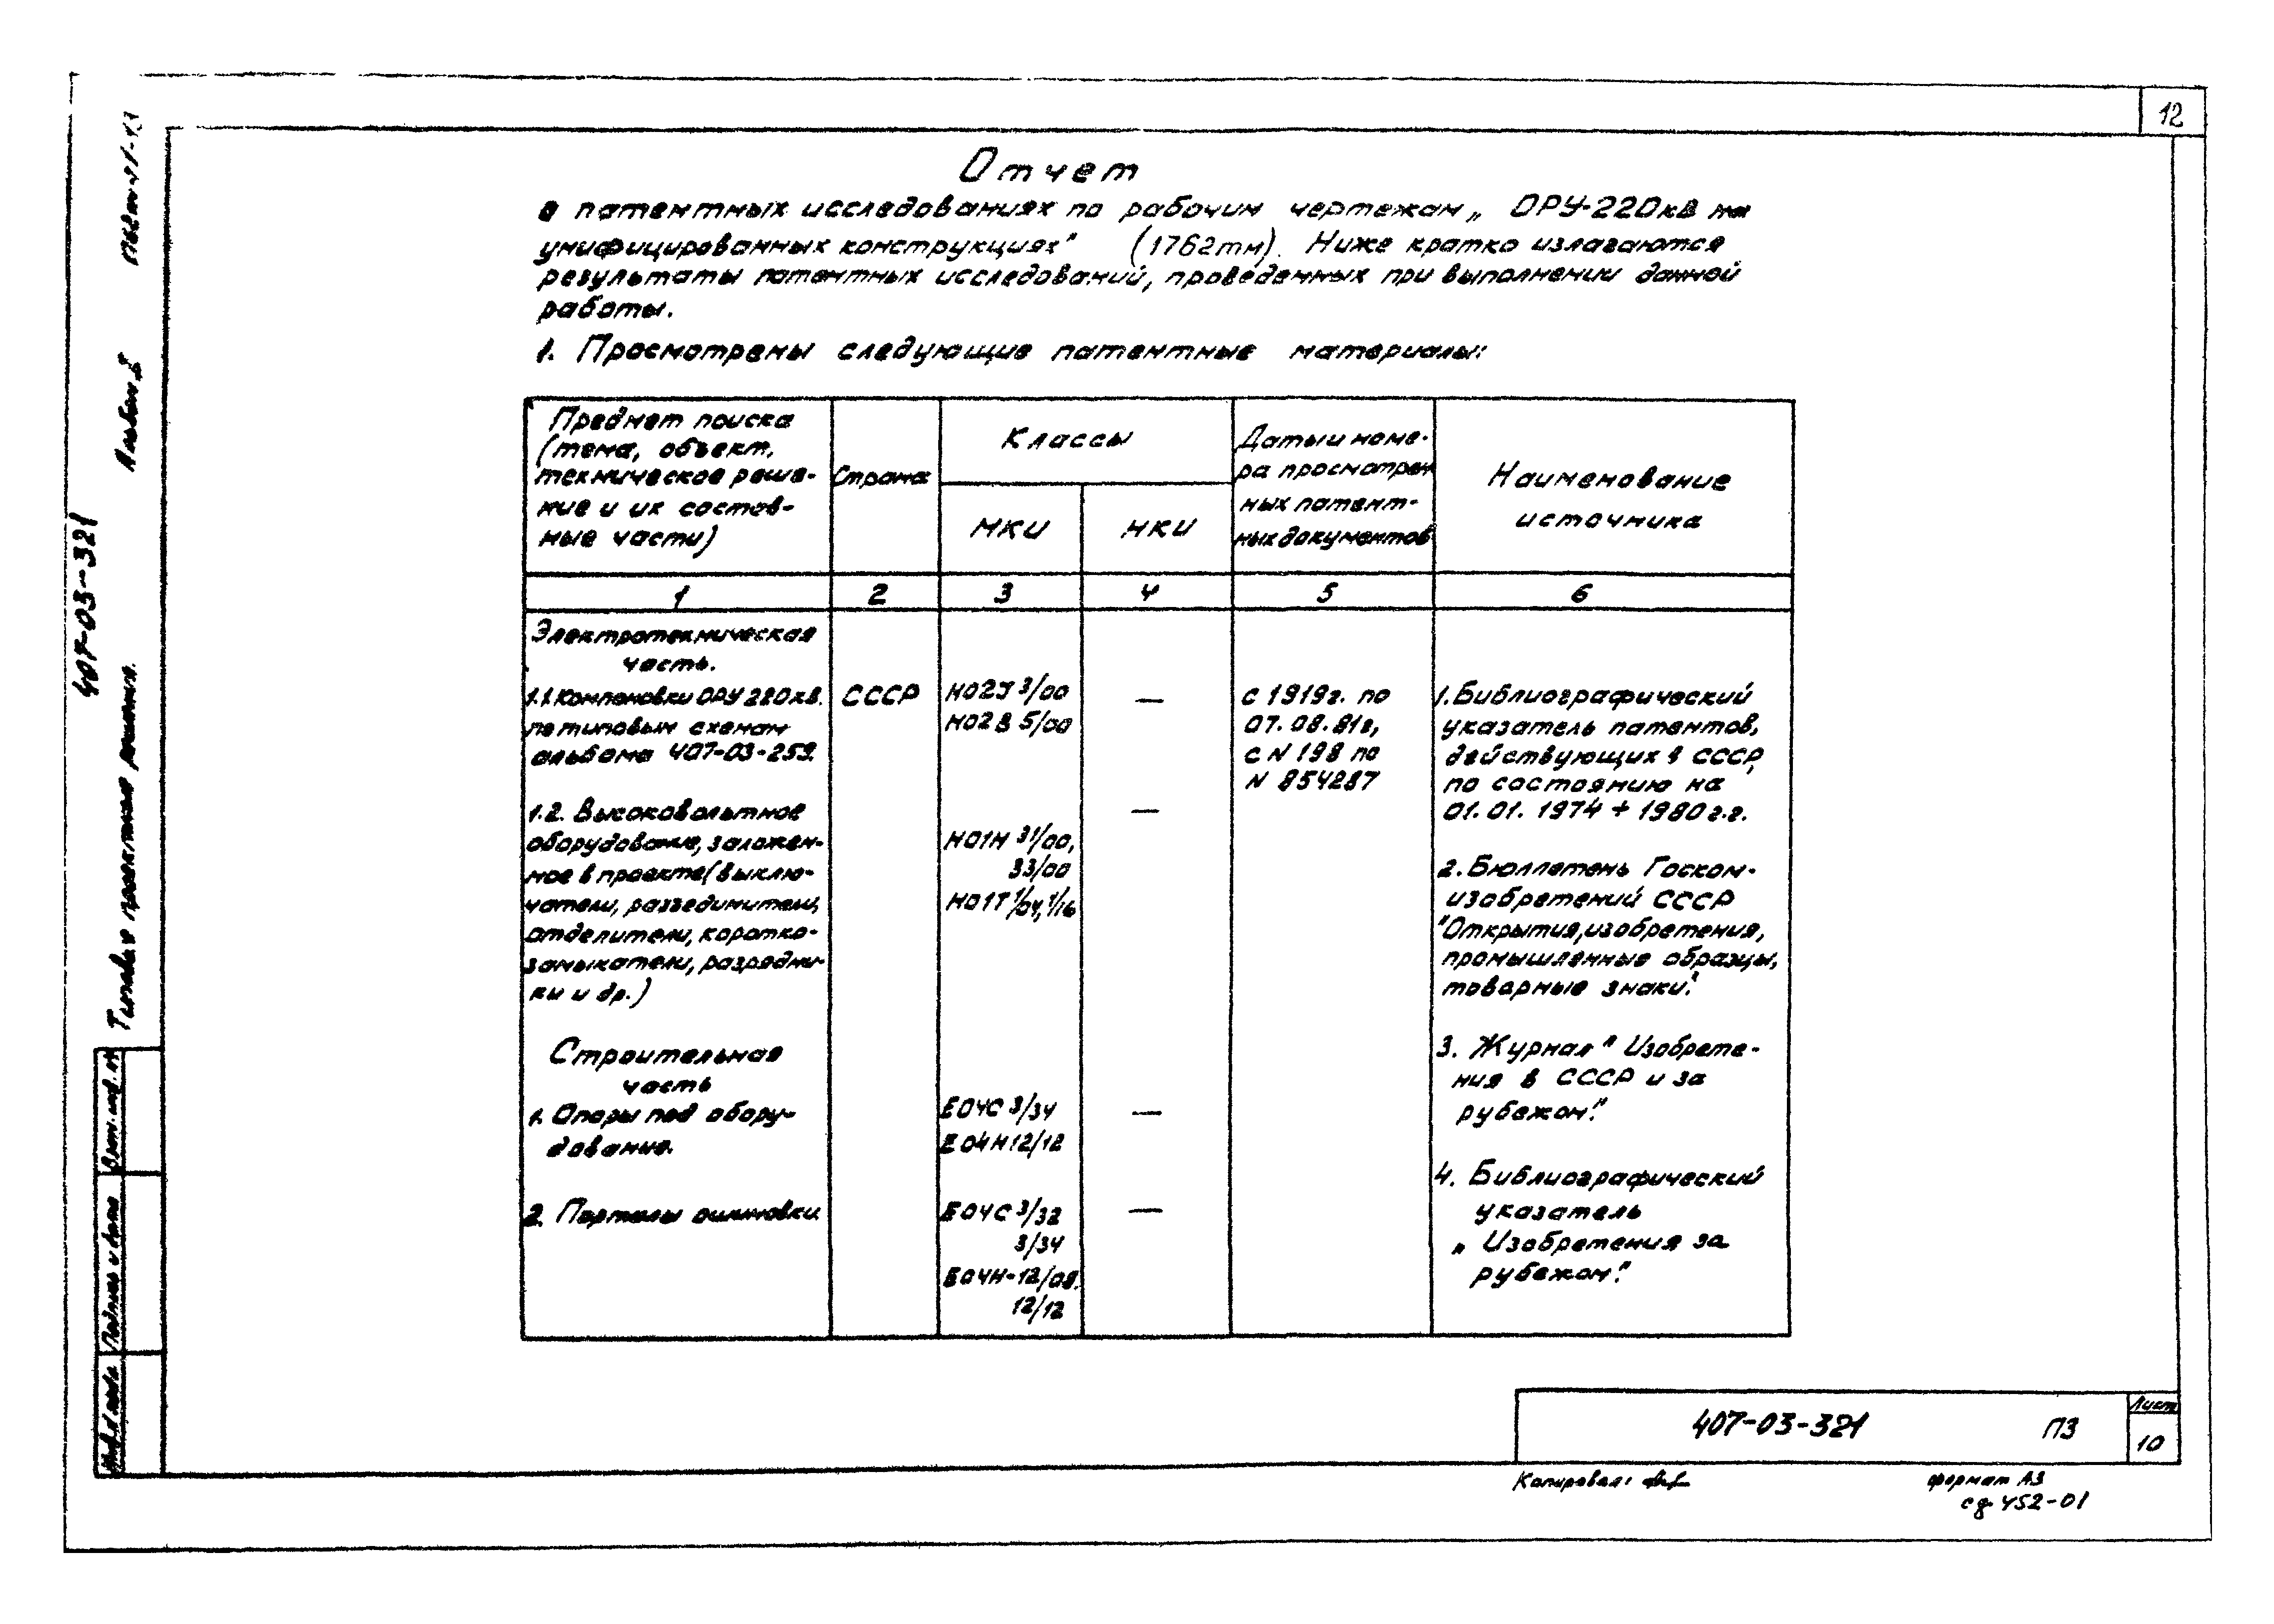 12
Отчет
о патентных исследованиях по рабочим чертежам „ ОРУ-220кВ на
унифицированных конструкциях" (1762тм). Ниже кратко излагаются
результаты патентных исследований, проведенных при выполнении данной
работы.
1. Просмотрены следующие патентные материалы:
Предмет поиска
(тема, объект,
техническое реше-
ние и их состав-
ные части)
Страна
Классы
МКИ
НКИ
Даты и номе-
ра просмотрен
ных патент-
ных документов
Наименование
источника
1 2 3 4 5 6
Электротехническая
часть.
1.1. Компоновки ОРУ 220кВ.
по типовым схемам
альбома 407-03-259.
СССР
H02J 3/00
H02B 5/00
—
с 1919г. по
07.08.81г,
с N 198 по
N 854287
1. Библиографический
указатель патентов,
действующих в СССР,
по состоянию на
01.01. 1974 ÷ 1980 г.г.
1.2. Высоковольтное
оборудование, заложен-
ное в проекте (выклю-
чатели, разъединители,
отделители, коротко-
замыкатели, разрядни-
ки и др.)
H01H 31/00,
33/00
H01T 1/04, 1/16
—
2. Бюллетень Госком-
изобретений СССР
"Открытия, изобретения,
промышленные образцы,
товарные знаки".
Строительная
часть
1. Опоры под обору-
дование.
E04C 3/34
E04H 12/12
—
3. Журнал "Изобрете-
ния в СССР и за
рубежом".
2. Порталы ошиновки
E04C 3/32
3/34
E04H-12/08.
12/12
—
4. Библиографический
указатель
„ Изобретения за
рубежом".
407-03-321 ПЗ
Лист
10
Копировал:
формат А3
сф 452-01
407-03-321
Типовые проектные решения.
Альбом
Взам. инв. №
Подпись и дата
Инв. № подл.